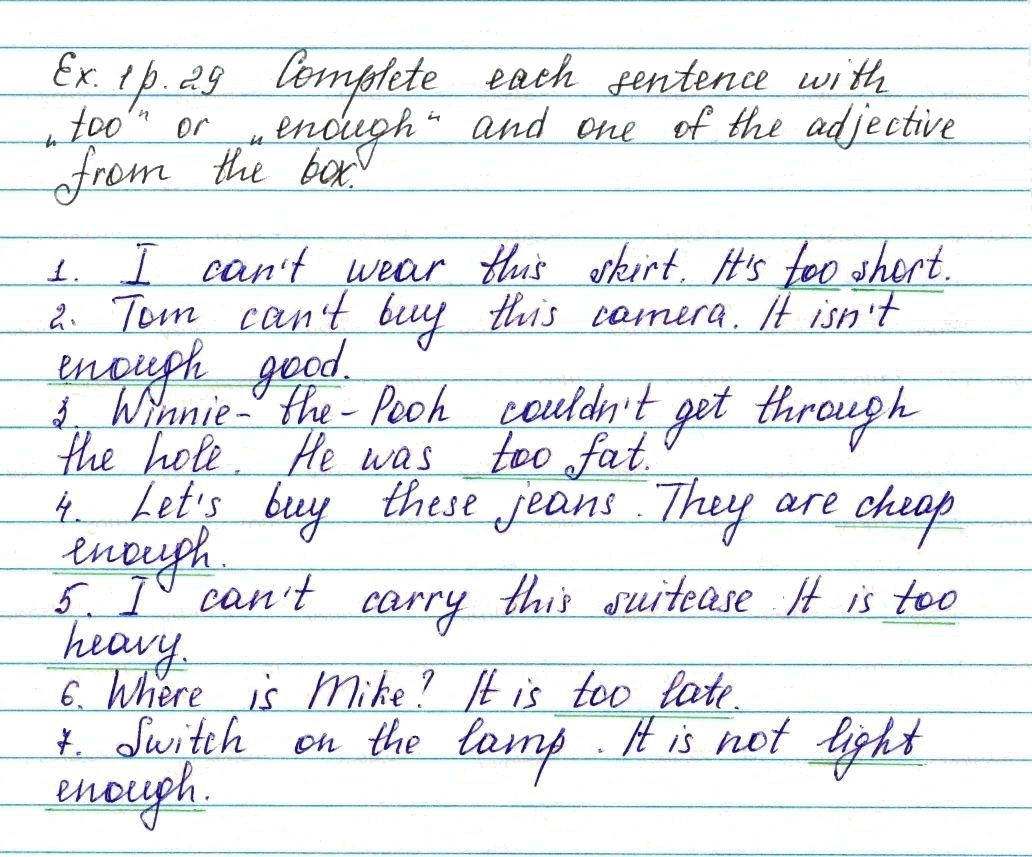 Ex. 1 p. 29 Complete each sentence with
„too“ or „enough“ and one of the adjective
from the box.
1. I can't wear this skirt. It's too short.
2. Tom can't buy this camera. It isn't
enough good.
3. Winnie-the-Pooh couldn't get through
the hole. He was too fat.
4. Let's buy these jeans. They are cheap
enough.
5. I can't carry this suitcase. It is too
heavy.
6. Where is Mike? It is too late.
7. Switch on the lamp. It is not light
enough.